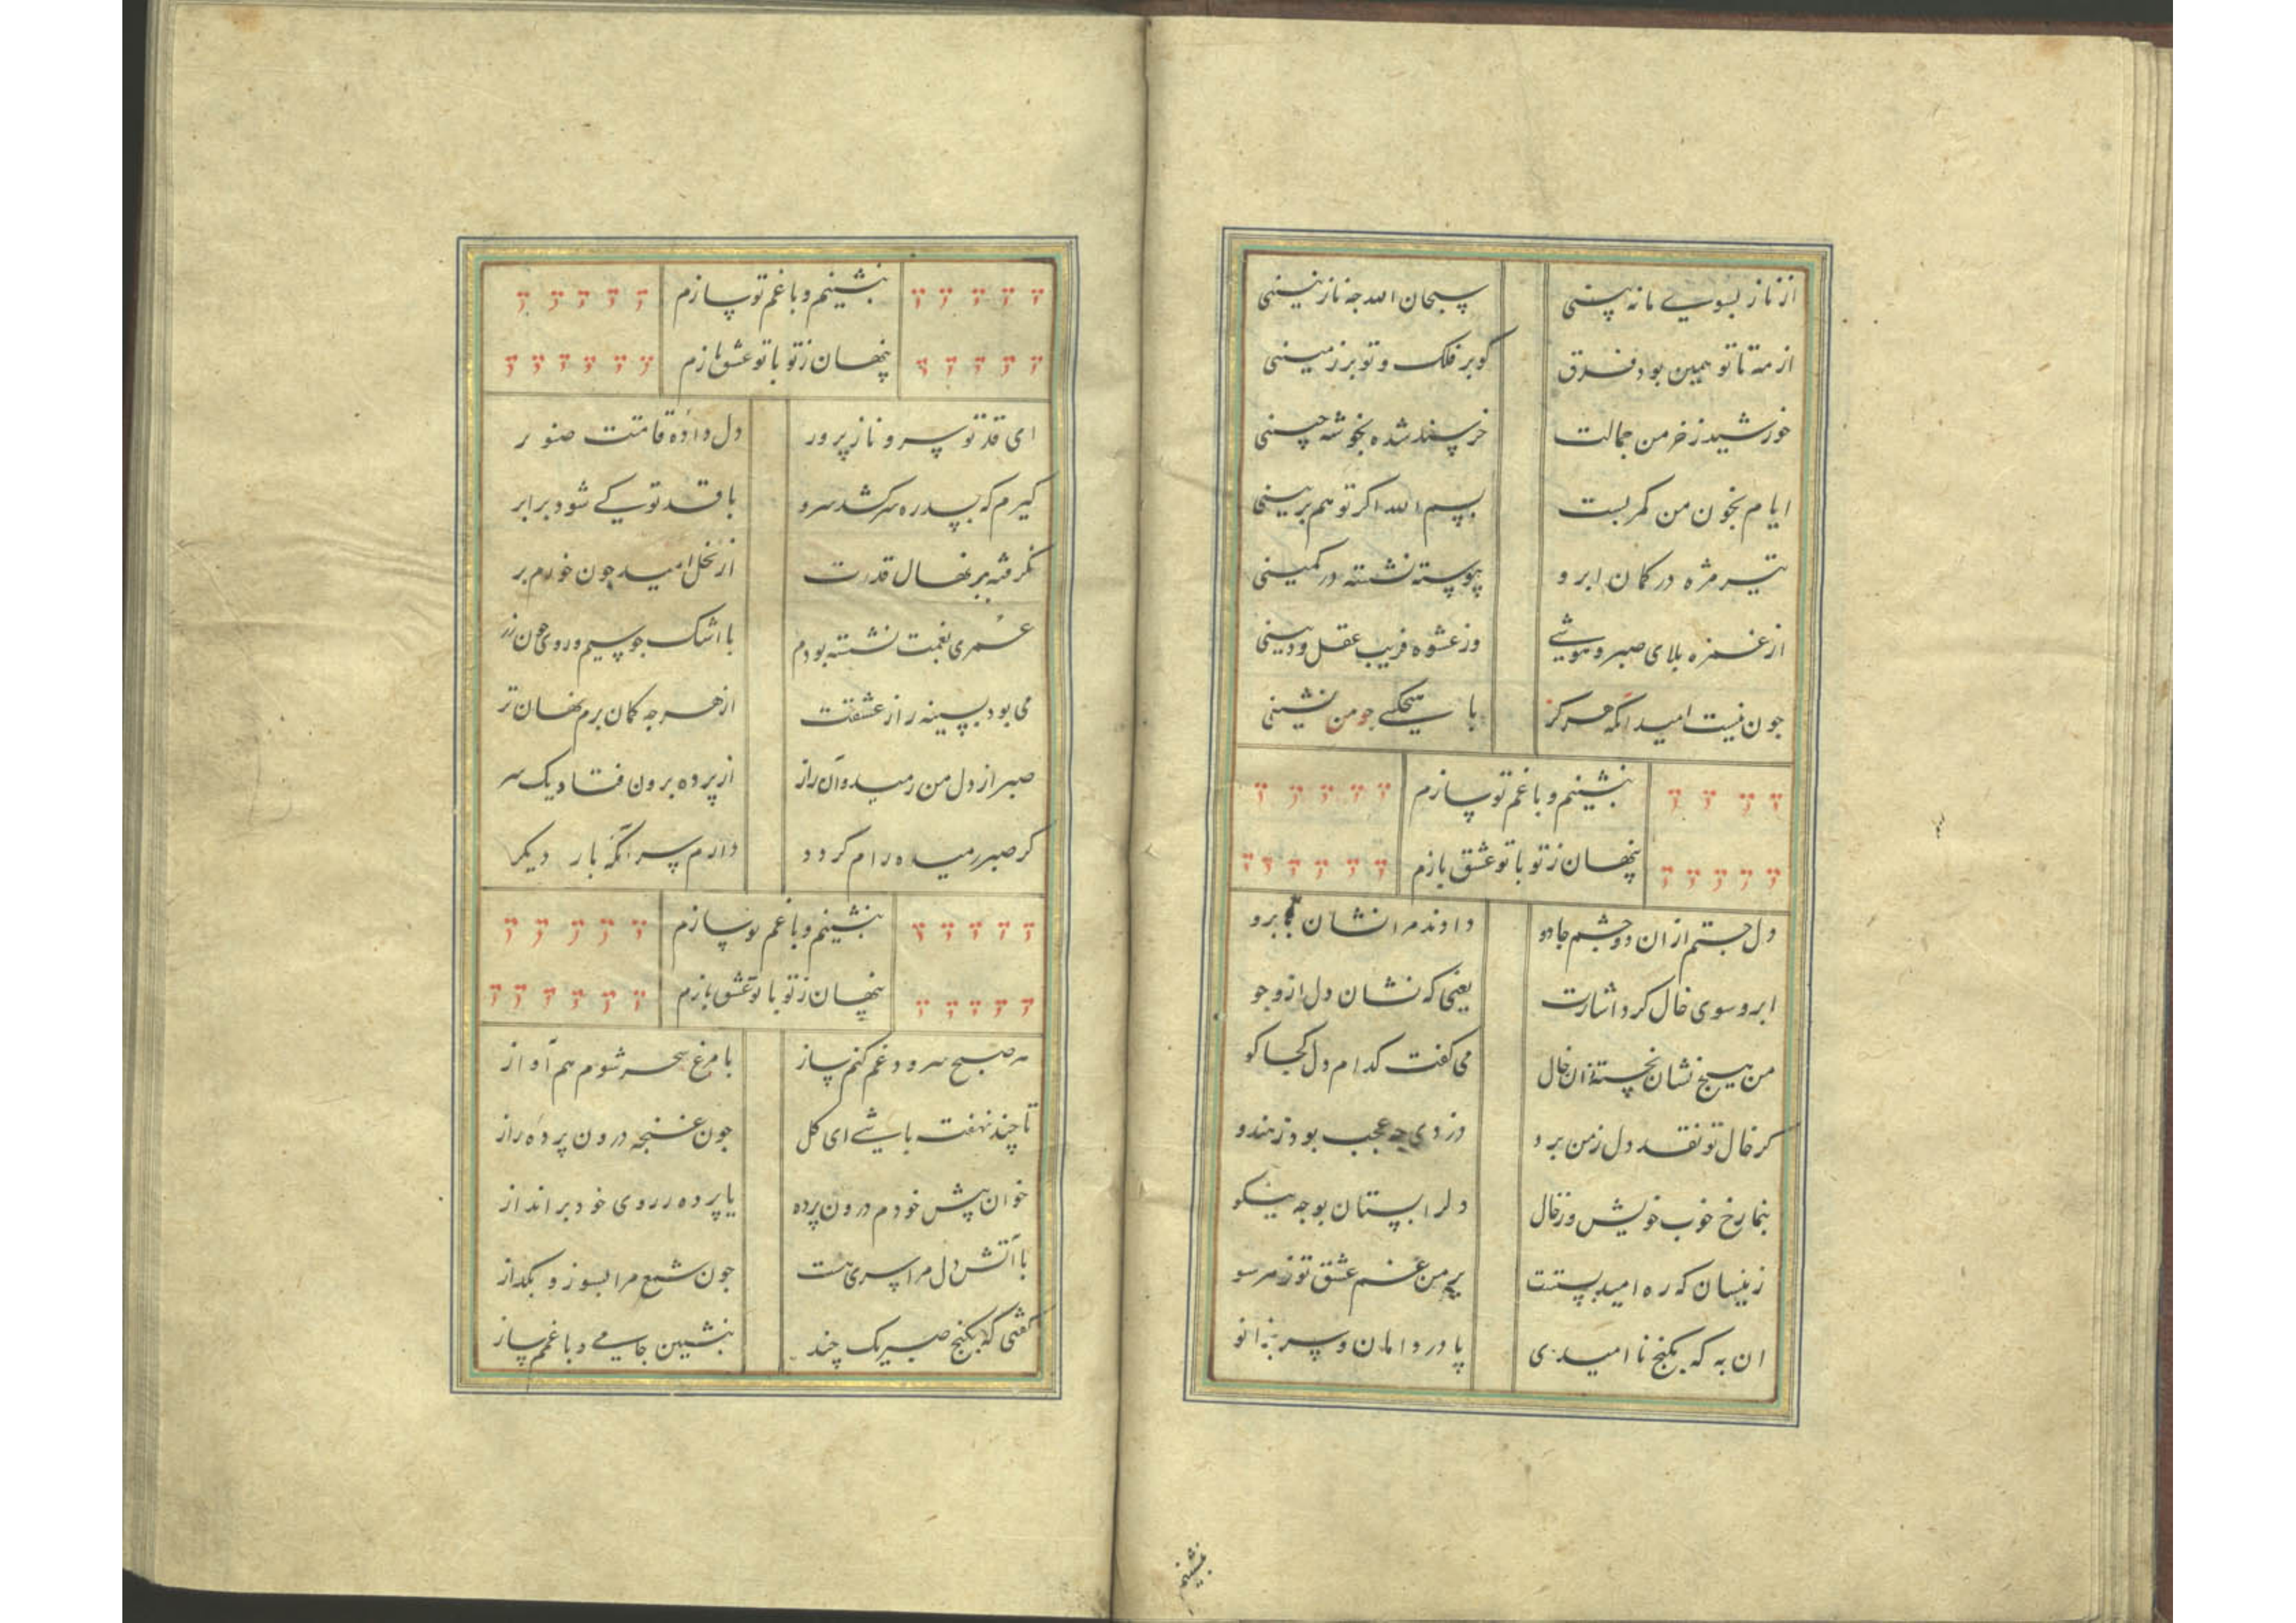 از ناز بسوی ما نه بینی سبحان الله جه نازنینی
از مه تا تو همین بود فرق کو بر فلک و تو بر زمینی
خورشید ز خرمن جمالت خرسند شده بخوشه چینی
ایام بخون من کمر بست بسم الله اکر تو هم برینی
تیر مژه در کمان ابرو پیوسته نشسته در کمینی
از غمزه بلای صبر و هوشی وز عشوه فریب عقل و دینی
جون نیست امید انکه هرکز با جو من نشینی
بنشینم و با غم تو سازم
پنهان ز تو با تو عشق بازم
دل جستم از ان دو جشم جادو دادند مرا نشان بابرو
ابرو سوی خال کرد اشارت یعنی که نشان دل ازو جو
من هیج نشان نجسته زان خال می کفت کدام دل کجا کو
کر خال تو نقد دل ز من برد دزدی جه عجب بود ز هندو
بنما رخ خوب خویش وز خال دل را بستان بوجه نیکو
زینسان که ره امید بستت بر من غم عشق تو ز هر سو
ان به که بکنج نا امیدی پا در دامان و سر بزانو
بنشینم
بنشینم و با غم تو سازم
پنهان ز تو با تو عشق بازم
ای قد تو سرو ناز پرور دل داده قامتت صنوبر
کیرم که بسدره سر کشد سرو با قد تو کے شود برابر
نکرفته بر نهال قدت از نخل امید چون خورم بر
عمری بغمت نشسته بودم با اشک جو سیم و روی جون زر
می بود بسینه راز عشقت از هر جه کمان برم نهان تر
صبر از دل من رمید و آن راز از پرده برون فتاد یک سر
کر صبر رمیده رام کردد دارم سر آنکه بار دیکر
بنشینم و با غم تو سازم
پنهان ز تو با تو عشق بازم
هر صبح سرود غم کنم ساز با مرغ سحر شوم هم آواز
تا چند نهفته باشے ای کل جون غنجه درون پرده راز
خوان پیش خودم درون پرده یا پرده ز روی خود برانداز
با آتش دل مرا سری هست جون شمع مرا بسوز و بکداز
کفتی که بکنج صبر یک چند بنشین جامے و با غمم ساز